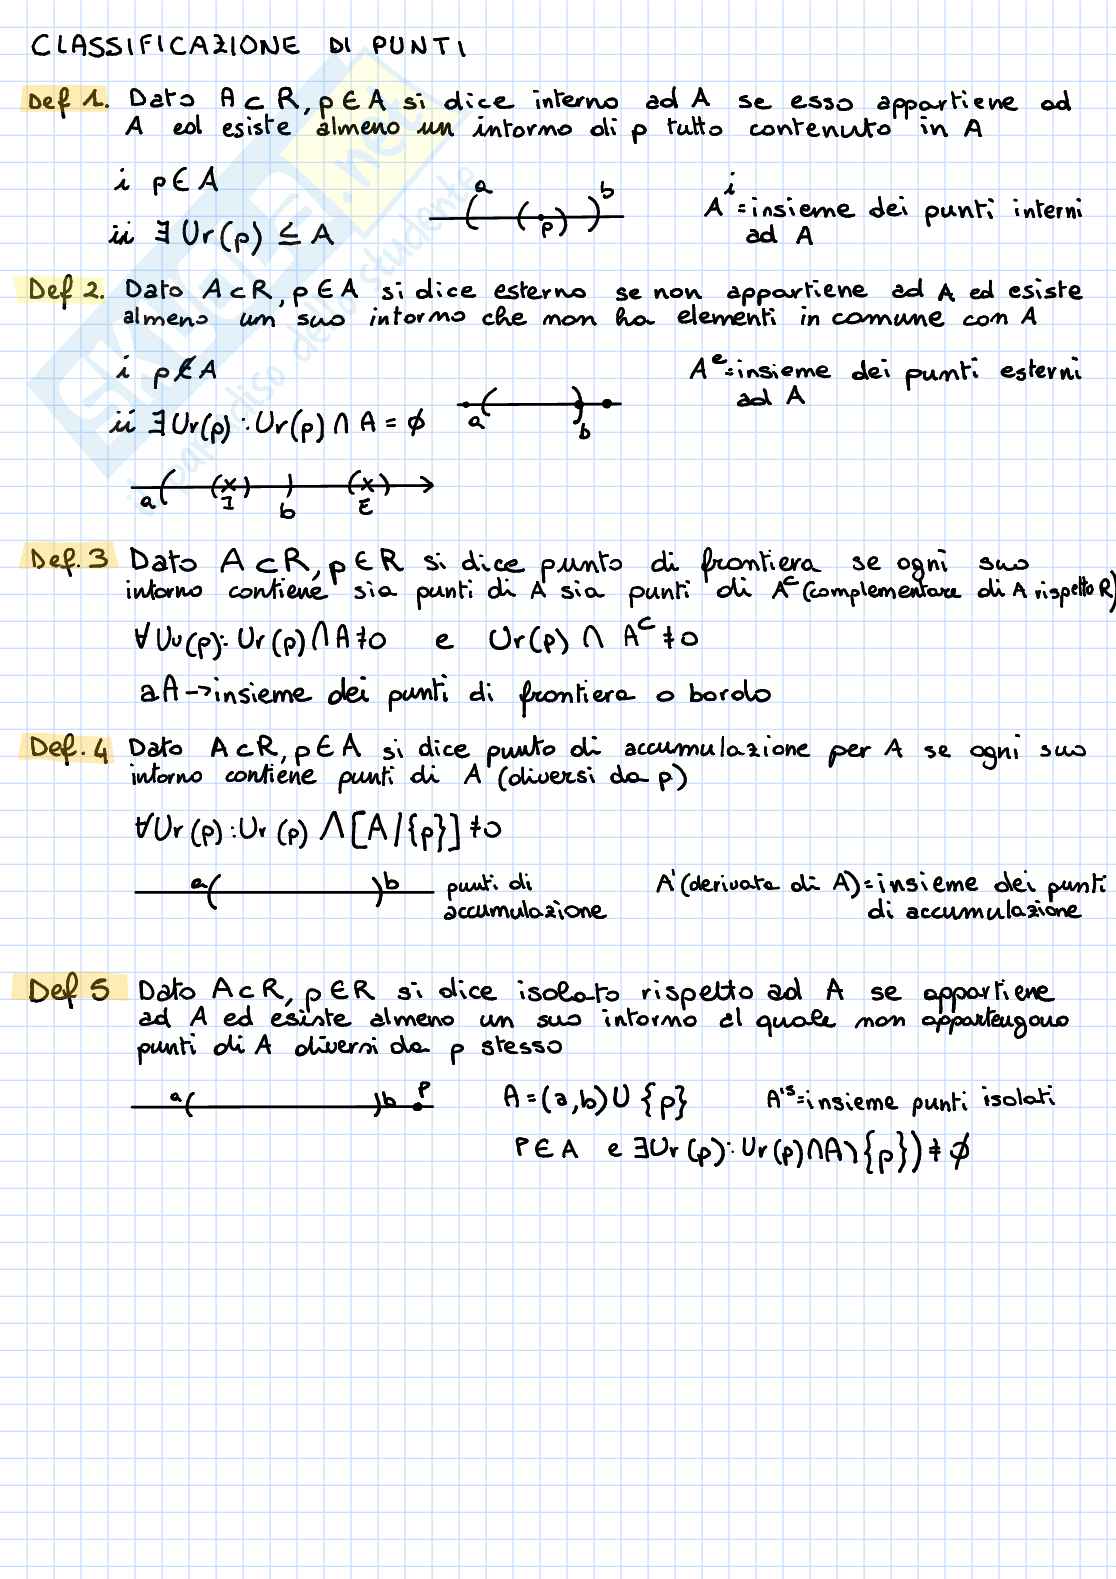 CLASSIFICAZIONE DI PUNTI
Def 1. Dato A ⊂ R, p ∈ A si dice interno ad A se esso appartiene ad
A ed esiste almeno un intorno di p tutto contenuto in A
i p ∈ A
a b
p
Aⁱ = insieme dei punti interni
ad A
ii ∃ Ur(p) ≤ A
Def 2. Dato A ⊂ R, p ∈ A si dice esterno se non appartiene ad A ed esiste
almeno un suo intorno che non ha elementi in comune con A
i p ∉ A
Aᵉ = insieme dei punti esterni
ad A
ii ∃ Ur(p) : Ur(p) ∩ A = ∅
a b
a ( (x) ) (x)
I b E
Def. 3 Dato A ⊂ R, p ∈ R si dice punto di frontiera se ogni suo
intorno contiene sia punti di A sia punti di Aᶜ (complementare di A rispetto R)
∀ Uv(p): Ur(p) ∩ A ≠ 0 e Ur(p) ∩ Aᶜ ≠ 0
aA → insieme dei punti di frontiera o bordo
Def. 4 Dato A ⊂ R, p ∈ A si dice punto di accumulazione per A se ogni suo
intorno contiene punti di A (diversi da p)
∀ Ur(p) : Ur(p) ∧ [A/{p}] ≠ 0
a ( ) b punti di
accumulazione
A' (derivata di A) = insieme dei punti
di accumulazione
Def 5 Dato A ⊂ R, p ∈ R si dice isolato rispetto ad A se appartiene
ad A ed esiste almeno un suo intorno al quale non appartengono
punti di A diversi da p stesso
a ( ) b P A = (a,b) ∪ {p} A'ˢ = insieme punti isolati
P ∈ A e ∃ Ur(p) : Ur(p) ∩ A \ {p}) ≠ ∅
SKUOLA.net
paradiso dello studente